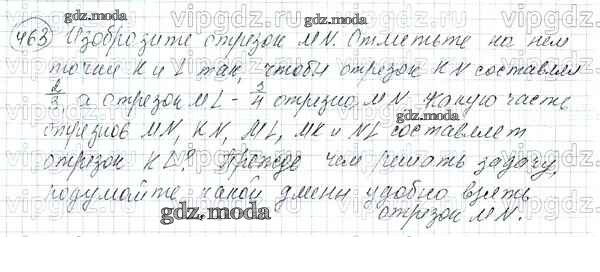 463 Изобразите отрезок MN. Отметьте на нем
точки K и L так, чтобы отрезок KN составлял
2/3, а отрезок ML - 3/4 отрезка MN. Какую часть
отрезков MN, KN, ML, MK и NL составляет
отрезок KL? Прежде чем решать задачу,
подумайте, какой длины удобно взять
отрезок MN.
gdz.moda
vipgdz.com